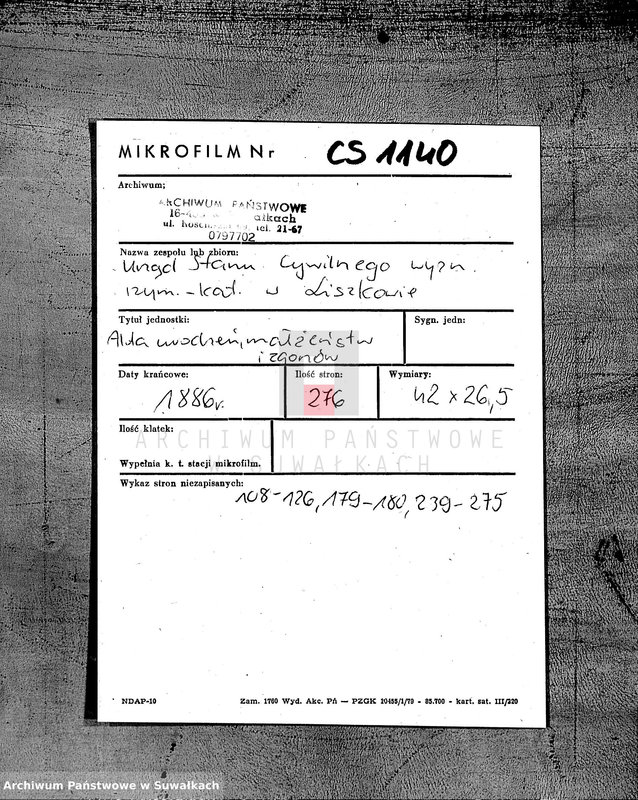 MIKROFILM Nr CS 1140
Archiwum;
ARCHIWUM PAŃSTWOWE
16-4 ałkach
ul. Kości tel. 21-67
0797702
Nazwa zespołu lub zbioru:
Urząd Stanu Cywilnego wyzn.
rzym.-kat. w Liszkowie
Tytuł jednostki: Sygn. jedn:
Akta urodzeń, małżeństw
i zgonów
Daty krańcowe: Ilość stron: Wymiary:
1886r. 276 42 x 26,5
Ilość klatek:
ARCHIWUM PAŃSTWOWE
W SUWAŁKACH
Wypełnia k. t. stacji mikrofilm.
Wykaz stron niezapisanych:
108-126, 179-180, 239-275
NDAP-10 Zam. 1760 Wyd. Akc. Pń — PZGK 10455/1/79 - 85.700 - kart. sat. III/220
Archiwum Państwowe w Suwałkach